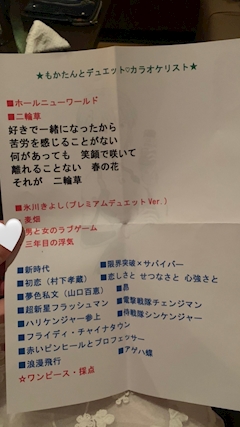 ★もかたんとデュエット♡カラオケリスト★
■ホールニューワールド
■二輪草
好きで一緒になったから
苦労を感じることがない
何があっても 笑顔で咲いて
離れることない 春の花
それが 二輪草
■氷川きよし(プレミアムデュエットVer.)
麦畑
男と女のラブゲーム
三年目の浮気
■新時代
■限界突破×サバイバー
■初恋(村下孝蔵)
■恋しさと せつなさと 心強さと
■夢色私文(山口百恵)
■昴
■超新星フラッシュマン
■電撃戦隊チェンジマン
■ハリケンジャー参上
■侍戦隊シンケンジャー
■フライディ・チャイナタウン
■赤いピンヒールとプロフェッサー
■アゲハ蝶
■浪漫飛行
☆ワンピース・採点